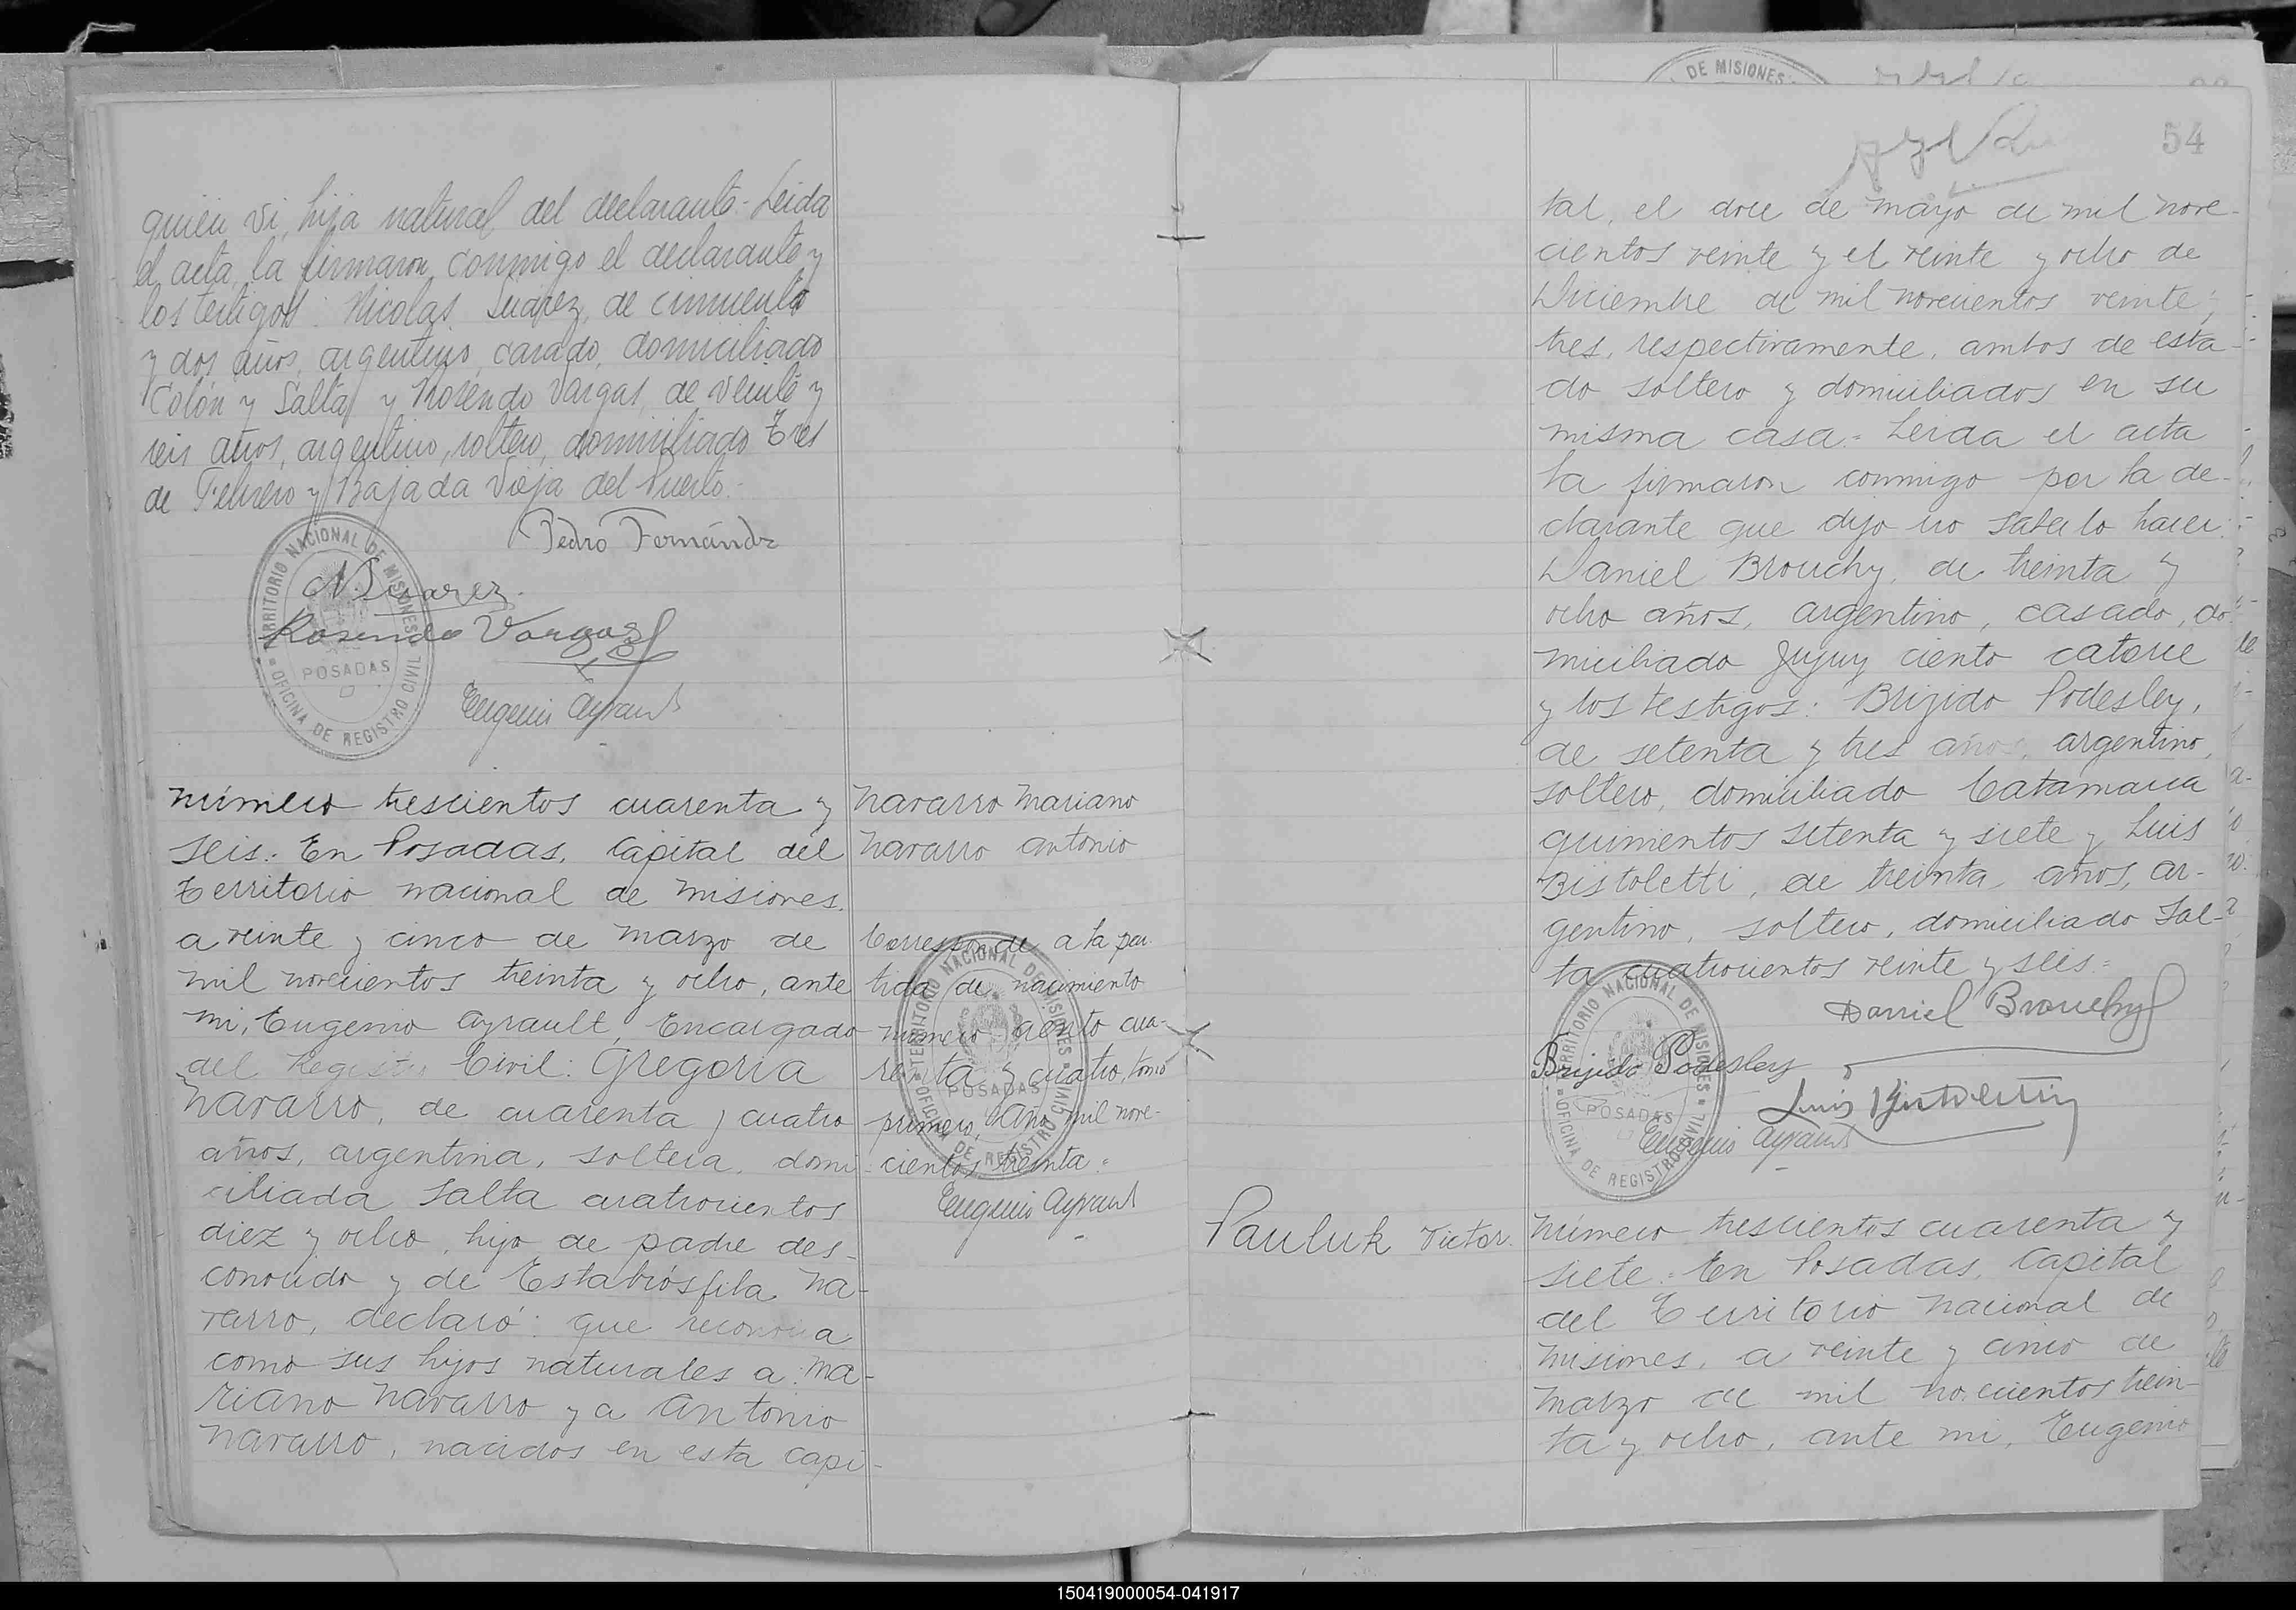 quien vi, hija natural del declarante - Leida
el acta, la firmaron conmigo el declarante y
los testigos: Nicolas Suarez, de cincuenta
y dos años, argentino, casado, domiciliado
Colón y Salta y Rosendo Vargas, de veinte y
seis años, argentino, soltero, domiciliado Tres
de Febrero y Bajada Vieja del Puerto.-
Pedro Fernández
N. Suarez.
Rosendo Vargas
Eugenio Ayrault
TERRITORIO NACIONAL DE MISIONES
POSADAS
OFICINA DE REGISTRO CIVIL
número trescientos cuarenta y
seis: En Posadas, Capital del
Territorio nacional de misiones.
a veinte y cinco de marzo de
mil novecientos treinta y ocho, ante
mi, Eugenio Ayrault, Encargado
del Registro Civil: Gregoria
Navarro, de cuarenta y cuatro
años, argentina, soltera, domi-
ciliada Salta cuatrocientos
diez y ocho, hija de padre des-
conocido y de Estabrósfila Na-
varro, declaró: que reconocia
como sus hijos naturales a Ma-
riano Navarro y a Antonio
Navarro, nacidos en esta capi-
Navarro Mariano
Navarro Antonio
Corresponde a la par-
tida de nacimiento
número ciento cua-
renta y cuatro, tomo
primero, Año mil nove-
cientos treinta =
Eugenio Ayrault
TERRITORIO NACIONAL DE MISIONES
POSADAS
OFICINA DE REGISTRO CIVIL
DE MISIONES
54
tal, el doce de mayo de mil nove-
cientos veinte y el veinte y ocho de
Diciembre de mil novecientos veinte y
tres, respectivamente, ambos de esta-
do soltero y domiciliados en su
misma casa = Leida el acta
la firmaron conmigo por la de-
clarante que dijo no saberlo hacer:
Daniel Brouchy, de treinta y
ocho años, argentino, casado, do-
miciliado Jujuy ciento catorce
y los testigos: Brijido Podesley,
de setenta y tres años, argentino,
soltero, domiciliado Catamarca
quinientos setenta y siete y Luis
Bistoletti, de treinta años, ar-
gentino, soltero, domiciliado Sal-
ta cuatrocientos veinte y seis =
Daniel Brouchy
Brijido Podesley
Luis Bistoletti
Eugenio Ayrault
TERRITORIO NACIONAL DE MISIONES
POSADAS
OFICINA DE REGISTRO CIVIL
Pauluk Victor.
número trescientos cuarenta y
siete = En Posadas, Capital
del Territorio Nacional de
misiones, a veinte y cinco de
marzo de mil novecientos trein-
ta y ocho, ante mi, Eugenio
150419000054-041917